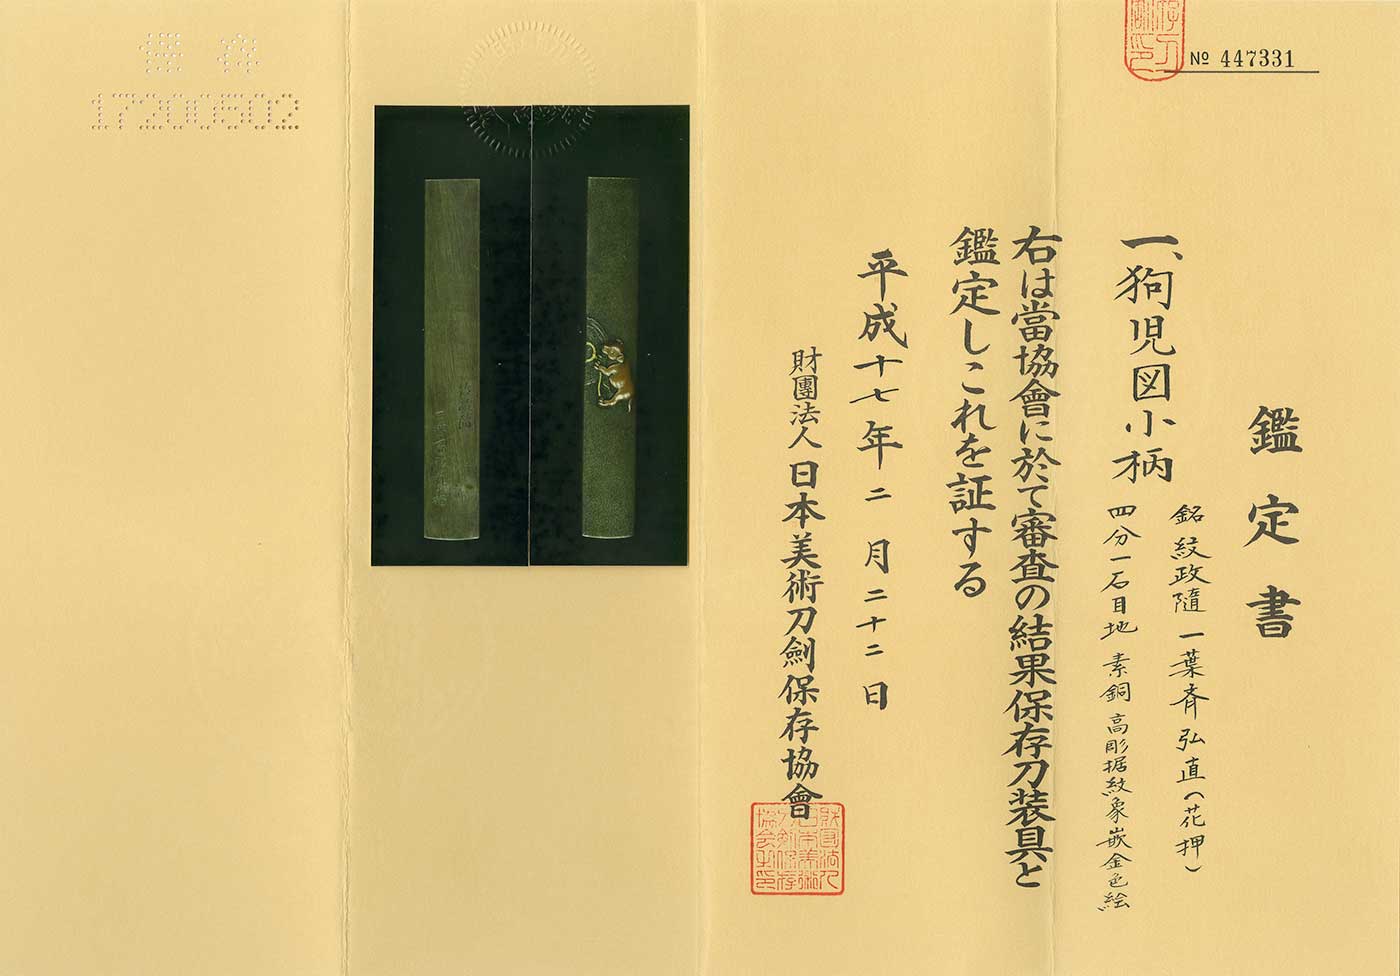 № 447331
鑑定書
一、狗児図小柄
銘 紋政隨 一葉斉弘直(花押)
四分一石目地 素銅高彫据紋象嵌金色絵
右は當協會に於て審査の結果保存刀装具と
鑑定しこれを証する
平成十七年二月二十二日
財團法人日本美術刀劍保存協會
財団法人日本美術刀剣保存協会之印
保存
17200502